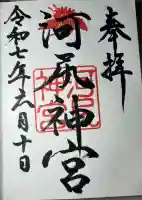 奉拝
河尻神宮
令和七年六月十日